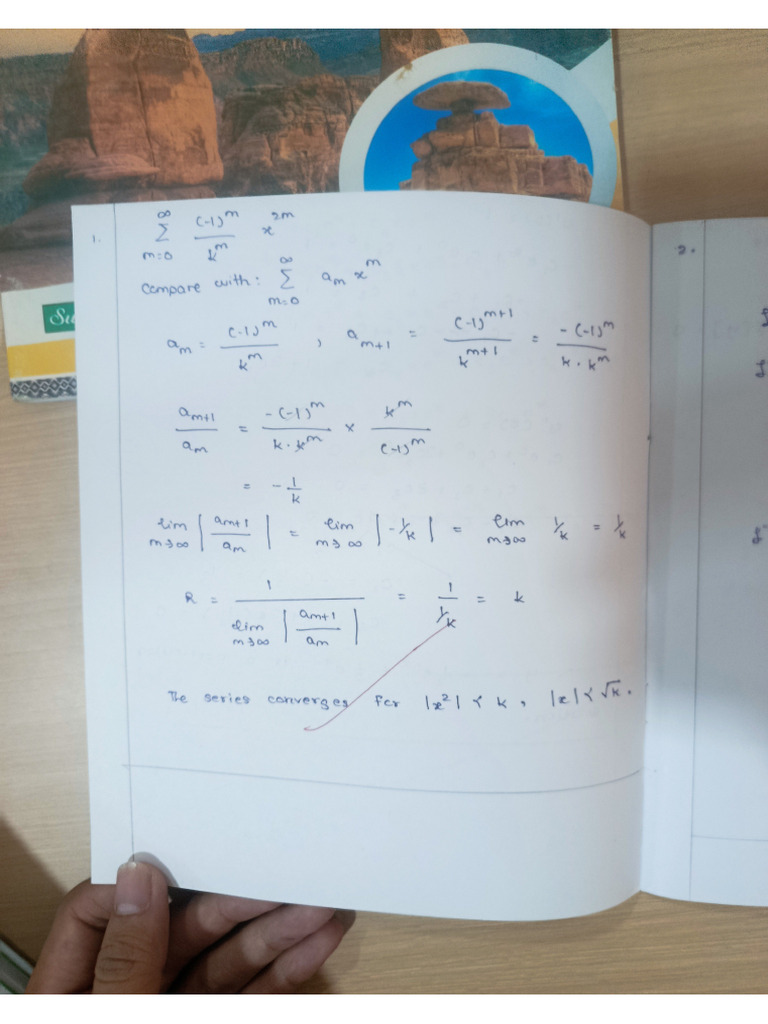 Su
1.
∞ Σ m=0 (-1)^m / k^m x^2m
2.
Compare with: ∞ Σ m=0 a_m x^m
a_m = (-1)^m / k^m , a_m+1 = (-1)^m+1 / k^m+1 = -(-1)^m / k . k^m
a_m+1 / a_m = -(-1)^m / k . k^m × k^m / (-1)^m
= - 1/k
lim m→∞ | a_m+1 / a_m | = lim m→∞ | -1/k | = lim m→∞ 1/k = 1/k
R = 1 / lim m→∞ | a_m+1 / a_m | = 1 / 1/k = k
The series converges for |x^2| < k, |x| < √k.